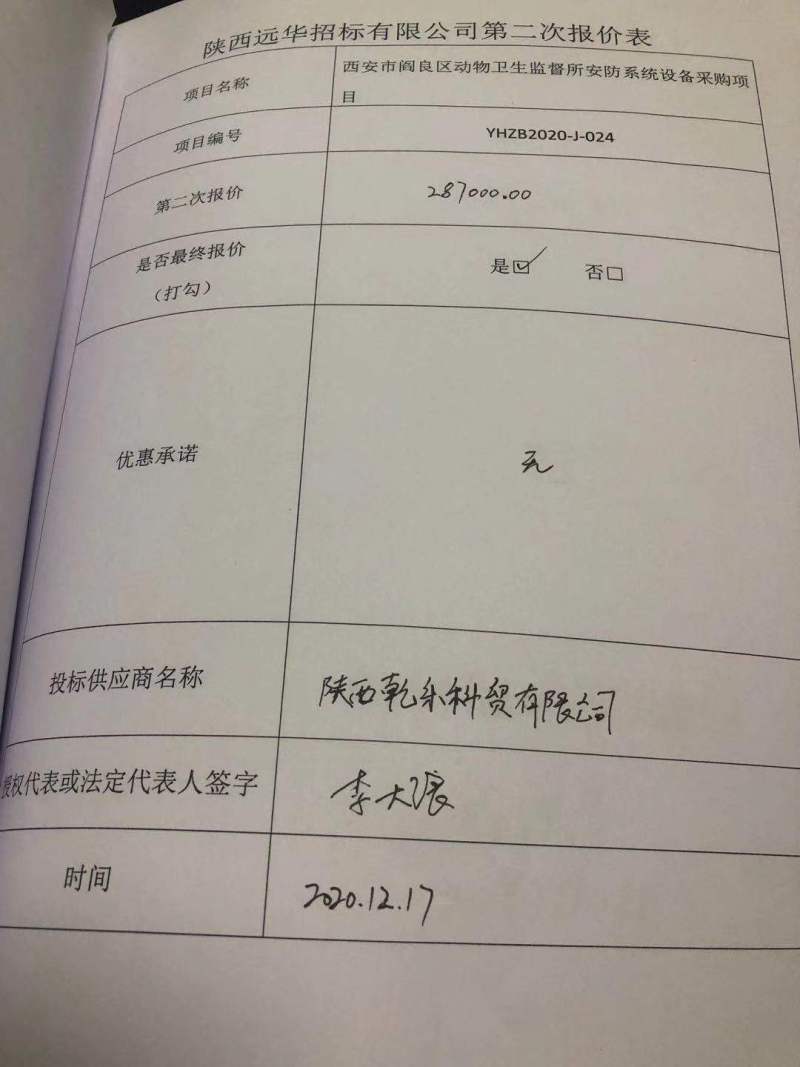 陕西远华招标有限公司第二次报价表
项目名称
西安市阎良区动物卫生监督所安防系统设备采购项
目
项目编号
YHZB2020-J-024
第二次报价
287000.00
是否最终报价
（打勾）
是☑ 否□
优惠承诺
无
投标供应商名称
陕西乾乐科贸有限公司
授权代表或法定代表人签字
李大浪
时间
2020.12.17